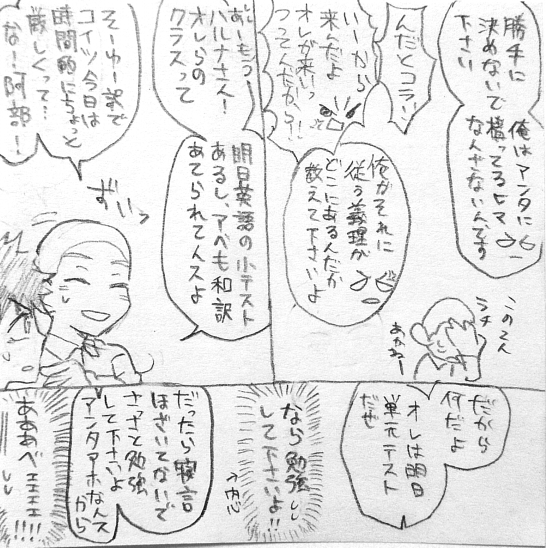 勝手に
決めないで
下さい
俺はアンタに
構ってるヒマ
なんやないんです
んだとコラ!!
いーから
来んだよ
オレが来いっ
つってんだから!!
俺がそれに
従う義理が
どこにあるんだか
教えて下さいよ
このてん
ラチ
あかねー
あーもうっ
ハルナさん!
オレらの
クラスって
明日英語の小テスト
あるし、アベも和訳
あてられてんスよ
そーゆー訳で
コイツ今日は
時間的にちょっと
厳しくって…
なー阿部!
ずいっ
だから
何だよ
オレは明日
単元テスト
だぜ
なら勉強
して下さいよ!!
↑内心
だったら寝言
ほざいてないで
さっさと勉強
して下さいよ
アンタアホなんス
から
あああべ
ェェェェ
!!!!